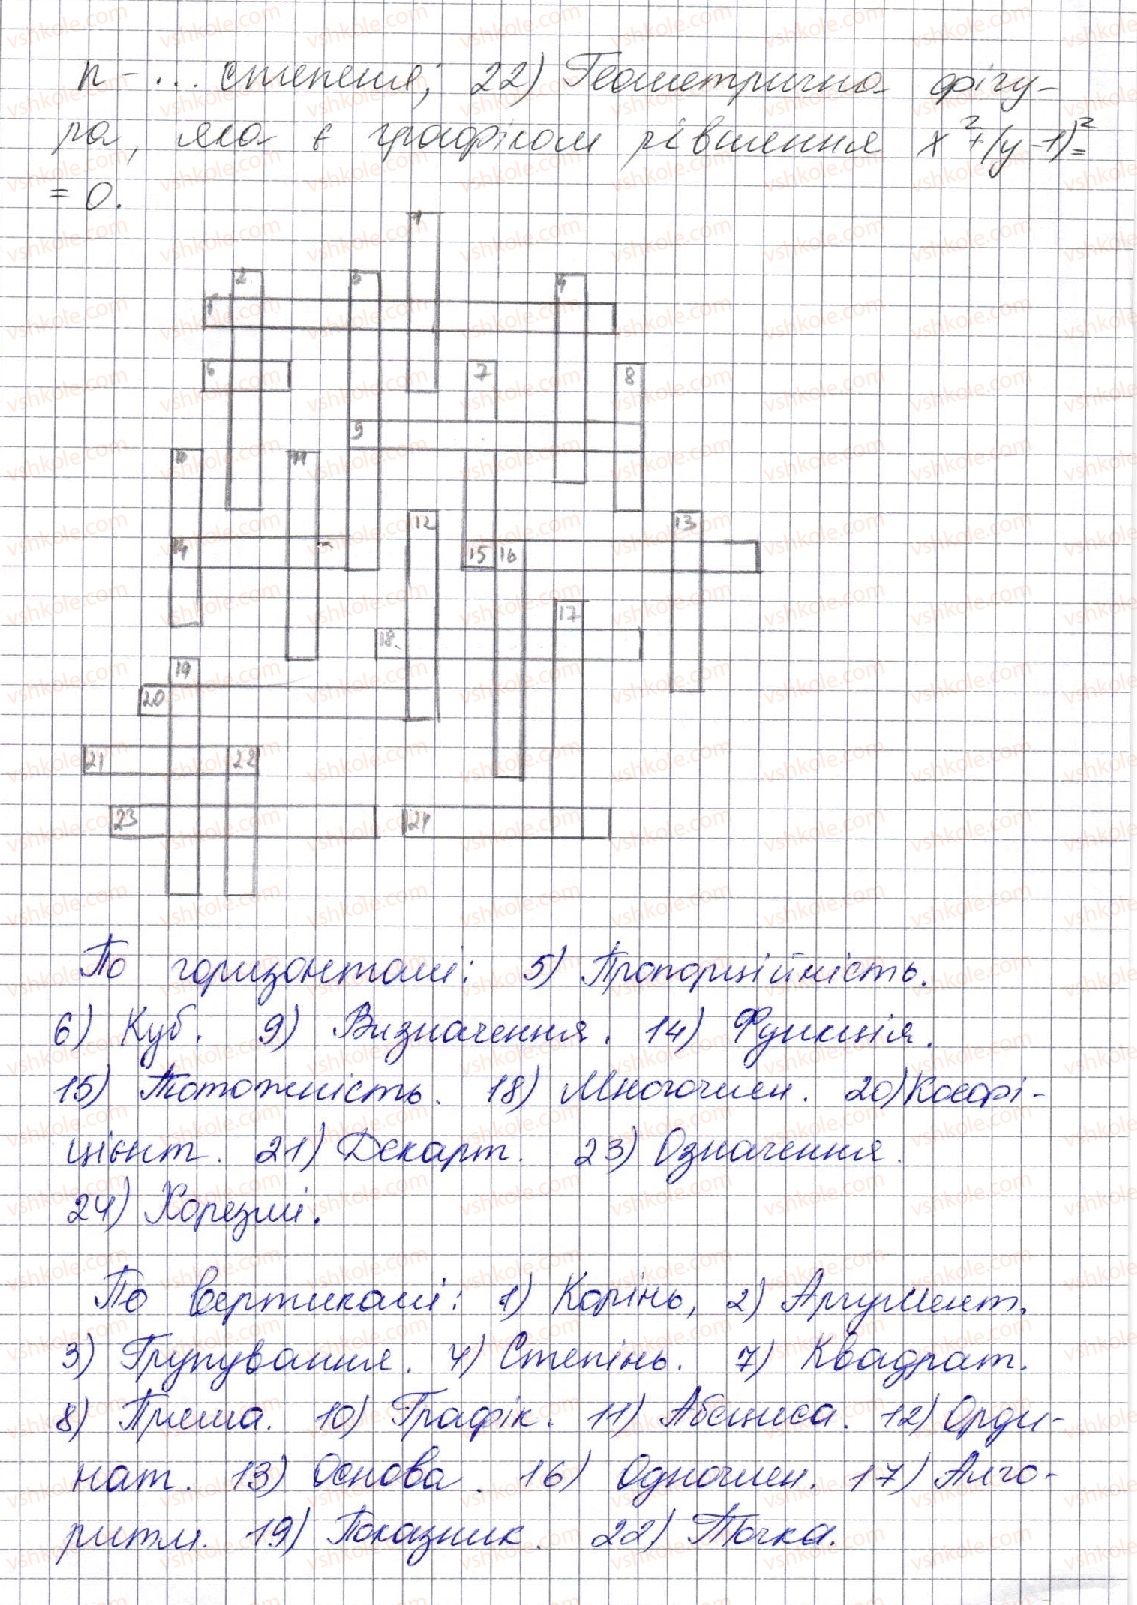 n - ... степеня; 22) Геометрична фігу-
ра, яка є графіком рівняння x² + (y - 1)² =
= 0.
1
2 3 4
5
6 7 8
9
10 11
12 13
14 15 16
17
18
19
20
21 22
23 24
По горизонталі: 5) Пропорційність.
6) Куб. 9) Визначення. 14) Функція.
15) Тотожність. 18) Многочлен. 20) Коефі-
цієнт. 21) Декарт. 23) Означення.
24) Хорезмі.
По вертикалі: 1) Корінь, 2) Аргумент.
3) Групування. 4) Степінь. 7) Квадрат.
8) Пряма. 10) Графік. 11) Абсциса. 12) Орди-
нат. 13) Основа. 16) Одночлен. 17) Алго-
ритм. 19) Показник. 22) Точка.
vshkole.com